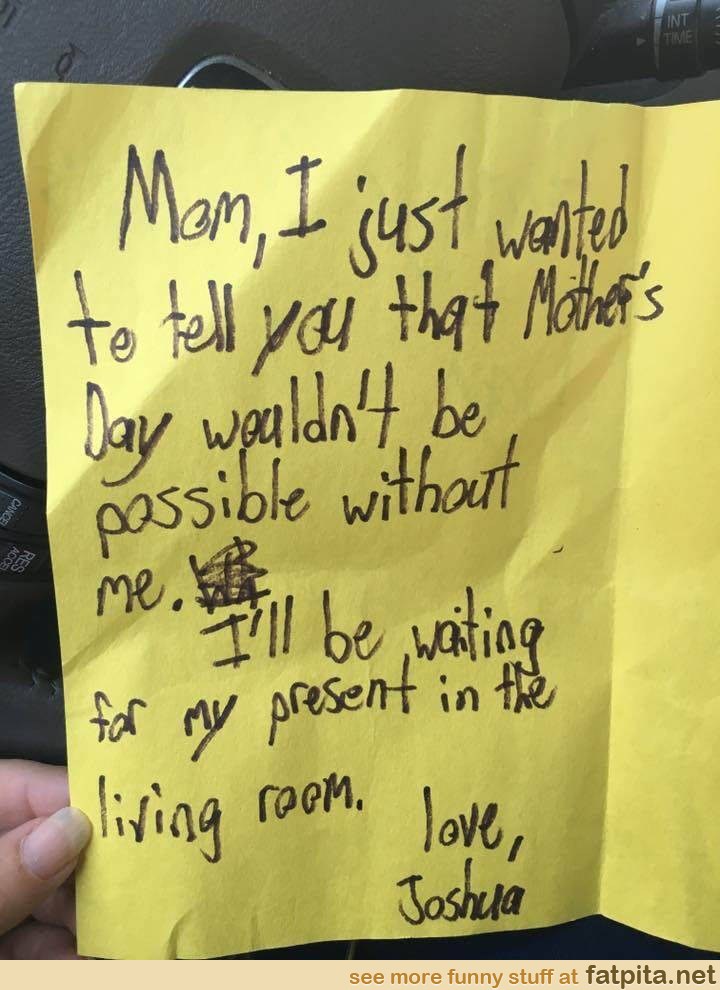 INT
TIME
Mom, I just wanted
to tell you that Mother's
Day wouldn't be
possible without
me.
I'll be waiting
for my present in the
living room.
love,
Joshua
CANCEL
RES
ACCEL
see more funny stuff at fatpita.net